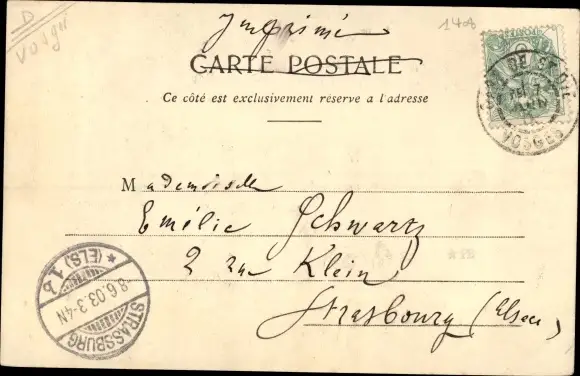 D
Vosges
1408
Imprimé
CARTE POSTALE
Ce côté est exclusivement réservé a l'adresse
GARE DE ST DIÉ
VOSGES
Mademoiselle
Emélie Schwartz
2 rue Klein
Strasbourg (Alsace)
STRASSBURG
* (ELS) 1 b
8.6.03.3-4N